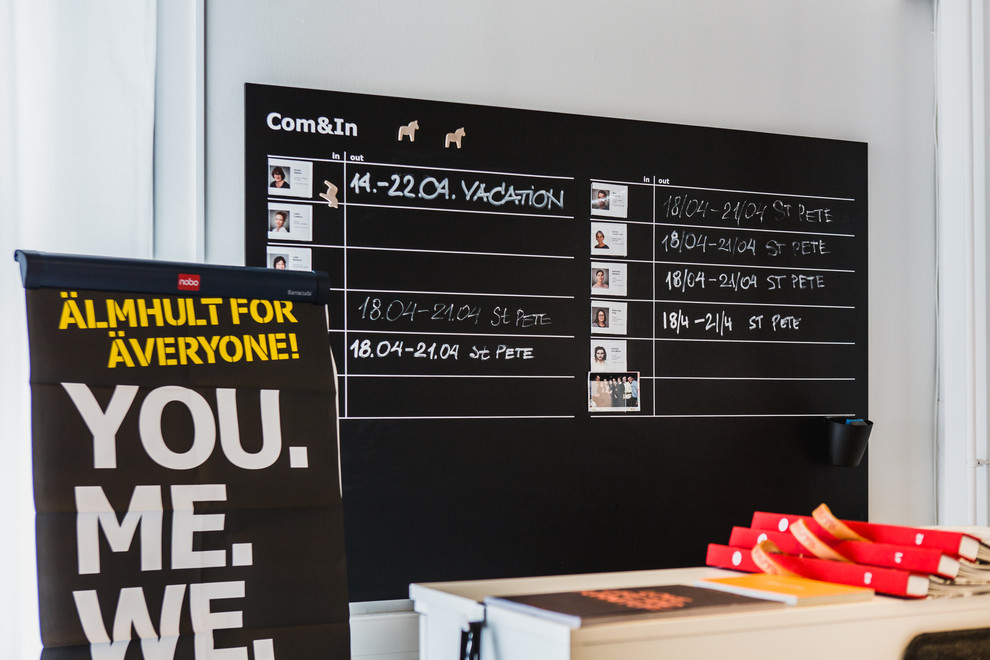 Com&In
in out
14.-22.04. VACATION
18.04-21.04 St PETE
18.04-21.04 St PETE
in out
18/04-21/04 ST PETE
18/04-21/04 ST PETE
18/04-21/04 ST PETE
18/4-21/4 ST PETE
nobo
Barracuda
ÄLMHULT FOR
ÄVERYONE!
YOU.
ME.
WE.